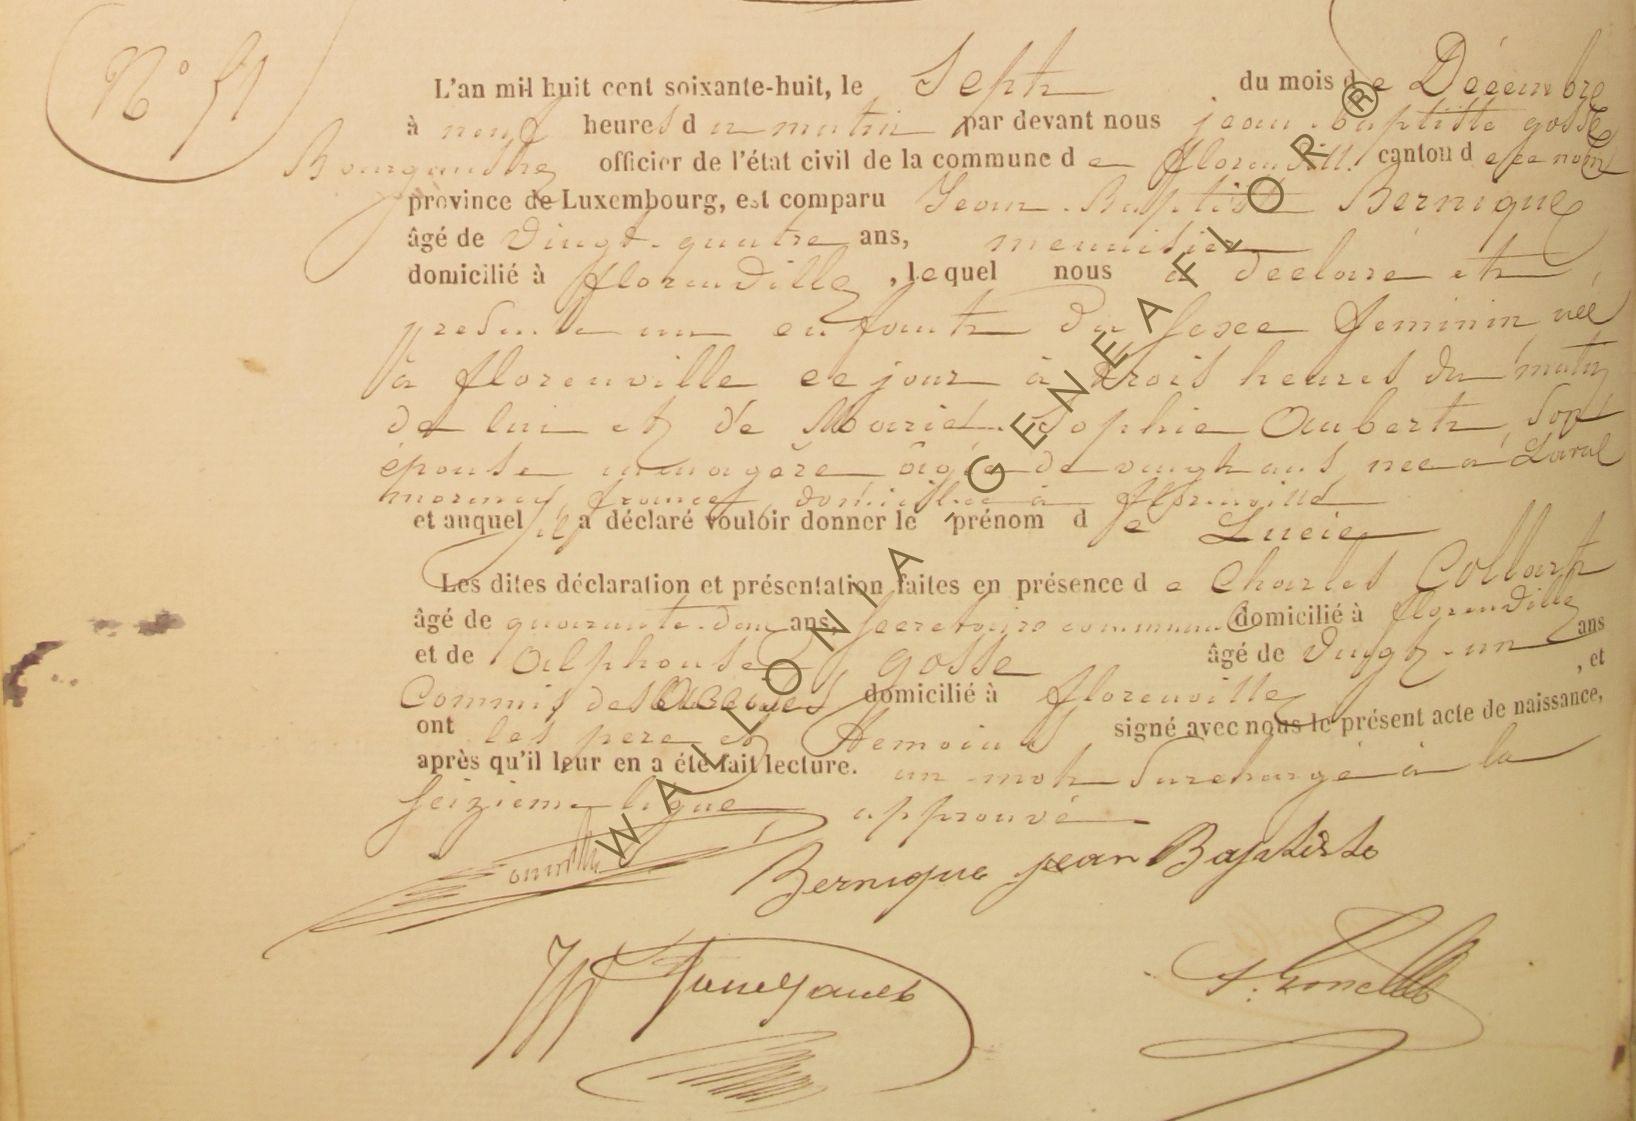 N° 51
L'an mil huit cent soixante-huit, le Sept du mois de Décembre
à neuf heures du matin par devant nous jean-baptiste gosse
Bourgmestre officier de l'état civil de la commune de florenville canton de ce nom
province de Luxembourg, est comparu Jean-Baptiste Bernique
âgé de vingt-quatre ans, menuisier
domicilié à florenville, lequel nous a déclaré et
presenté un enfant du sexe feminin née
à florenville ce jour à trois heures du matin
de lui et de Marie-Sophie Aubert son
épouse menagère âgée de vingt ans née à Laval
france domiciliée à florenville
et auquel il a déclaré vouloir donner le prénom de Lucie
Les dites déclaration et présentation faites en présence de Charles Collart
âgé de quarante-deux ans, secretaire communal domicilié à florenville
et de Alphonse gosse âgé de vingt-un ans
Commis des accises domicilié à florenville, et
ont les pere et temoins signé avec nous le présent acte de naissance,
après qu'il leur en a été fait lecture. un mot surchargé à la
seizieme ligne approuvé
Bernique jean Baptiste
WALLONIA-GENEAFLOR®